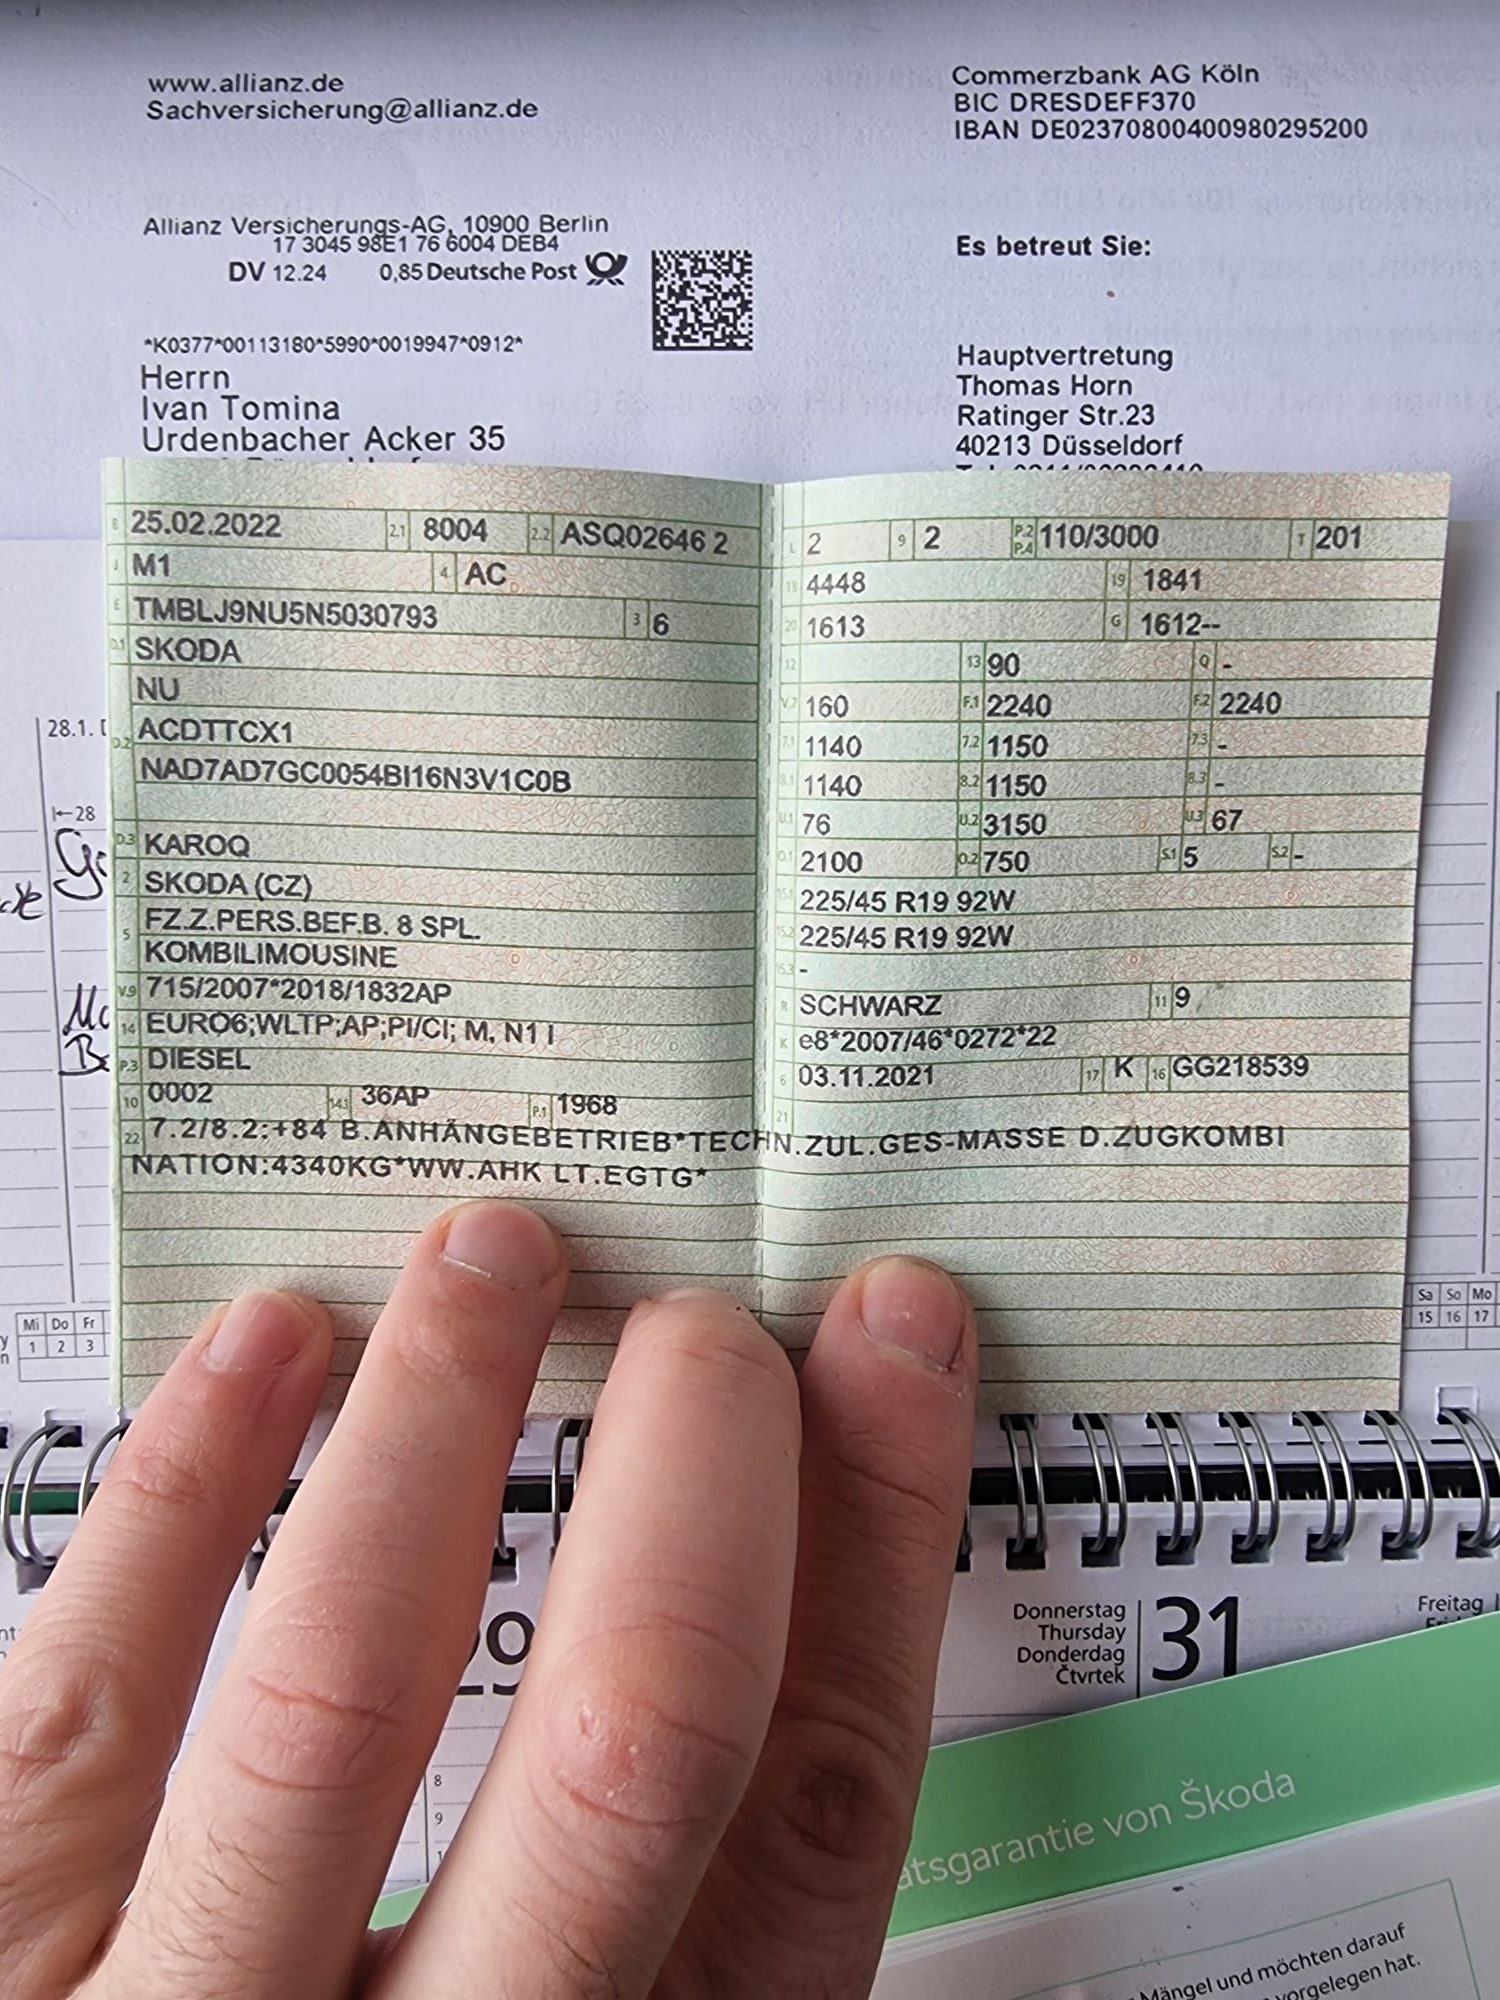 www.allianz.de
Sachversicherung@allianz.de
Commerzbank AG Köln
BIC DRESDEFF370
IBAN DE02370800400980295200
Allianz Versicherungs-AG, 10900 Berlin
17 3045 98E1 76 6004 DEB4
DV 12.24 0,85 Deutsche Post
Es betreut Sie:
*K0377*00113180*5990*0019947*0912*
Herrn
Ivan Tomina
Urdenbacher Acker 35
Hauptvertretung
Thomas Horn
Ratinger Str.23
40213 Düsseldorf
B 25.02.2022 2.1 8004 2.2 ASQ02646 2
J M1 4 AC
E TMBLJ9NU5N5030793 3 6
D.1 SKODA
NU
D.2 ACDTTCX1
NAD7AD7GC0054BI16N3V1C0B
D.3 KAROQ
2 SKODA (CZ)
5 FZ.Z.PERS.BEF.B. 8 SPL.
KOMBILIMOUSINE
V.9 715/2007*2018/1832AP
14 EURO6;WLTP;AP;PI/CI; M, N1 I
P.3 DIESEL
10 0002 14.1 36AP P.1 1968
L 2 9 2 P.2 P.4 110/3000 T 201
18 4448 19 1841
20 1613 G 1612--
12 13 90 Q -
V.7 160 F.1 2240 F.2 2240
7.1 1140 7.2 1150 7.3 -
8.1 1140 8.2 1150 8.3 -
U.1 76 U.2 3150 U.3 67
O.1 2100 O.2 750 S.1 5 S.2 -
15.1 225/45 R19 92W
15.2 225/45 R19 92W
15.3 -
R SCHWARZ 11 9
K e8*2007/46*0272*22
6 03.11.2021 17 K 16 GG218539
21
22 7.2/8.2:+84 B.ANHÄNGEBETRIEB*TECHN.ZUL.GES-MASSE D.ZUGKOMBI
NATION:4340KG*WW.AHK LT.EGTG*
28.1.
28
Mi Do Fr
1 2 3
Sa So Mo
15 16 17
29
Donnerstag
Thursday
Donderdag
Čtvrtek
31
Freitag
8
9
atsgarantie von Škoda
Mängel und möchten darauf
vorgelegen hat.